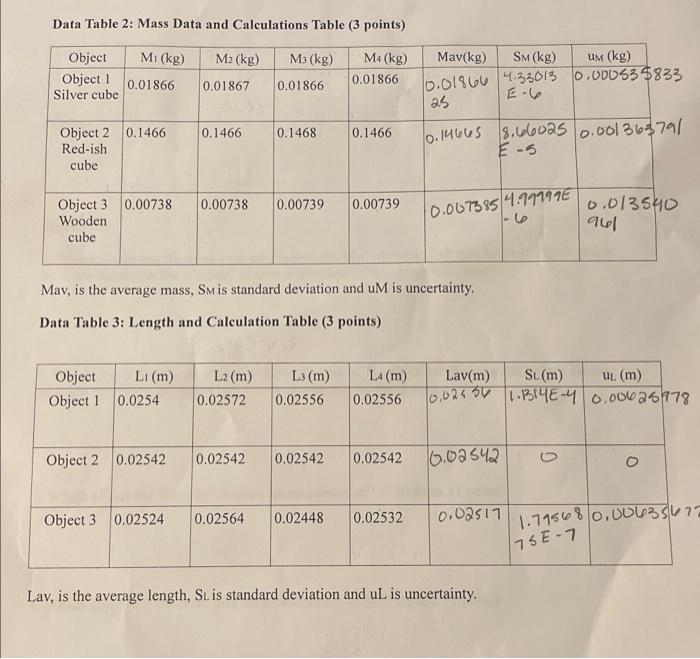 Data Table 2: Mass Data and Calculations Table (3 points)
Object M1 (kg) M2 (kg) M3 (kg) M4 (kg) Mav(kg) SM (kg) uM (kg)
Object 1 Silver cube 0.01866 0.01867 0.01866 0.01866 0.0186625 4.33013 E-6 0.000535833
Object 2 Red-ish cube 0.1466 0.1466 0.1468 0.1466 0.14665 8.66025 E-5 0.001363791
Object 3 Wooden cube 0.00738 0.00738 0.00739 0.00739 0.007385 4.99999E-6 0.013540961
Mav, is the average mass, SM is standard deviation and uM is uncertainty.
Data Table 3: Length and Calculation Table (3 points)
Object L1 (m) L2 (m) L3 (m) L4 (m) Lav(m) SL (m) uL (m)
Object 1 0.0254 0.02572 0.02556 0.02556
Object 2 0.02542 0.02542 0.02542 0.02542 0.02542 0 0
Object 3 0.02524 0.02564 0.02448 0.02532 0.02517
Lav, is the average length, SL is standard deviation and uL is uncertainty.